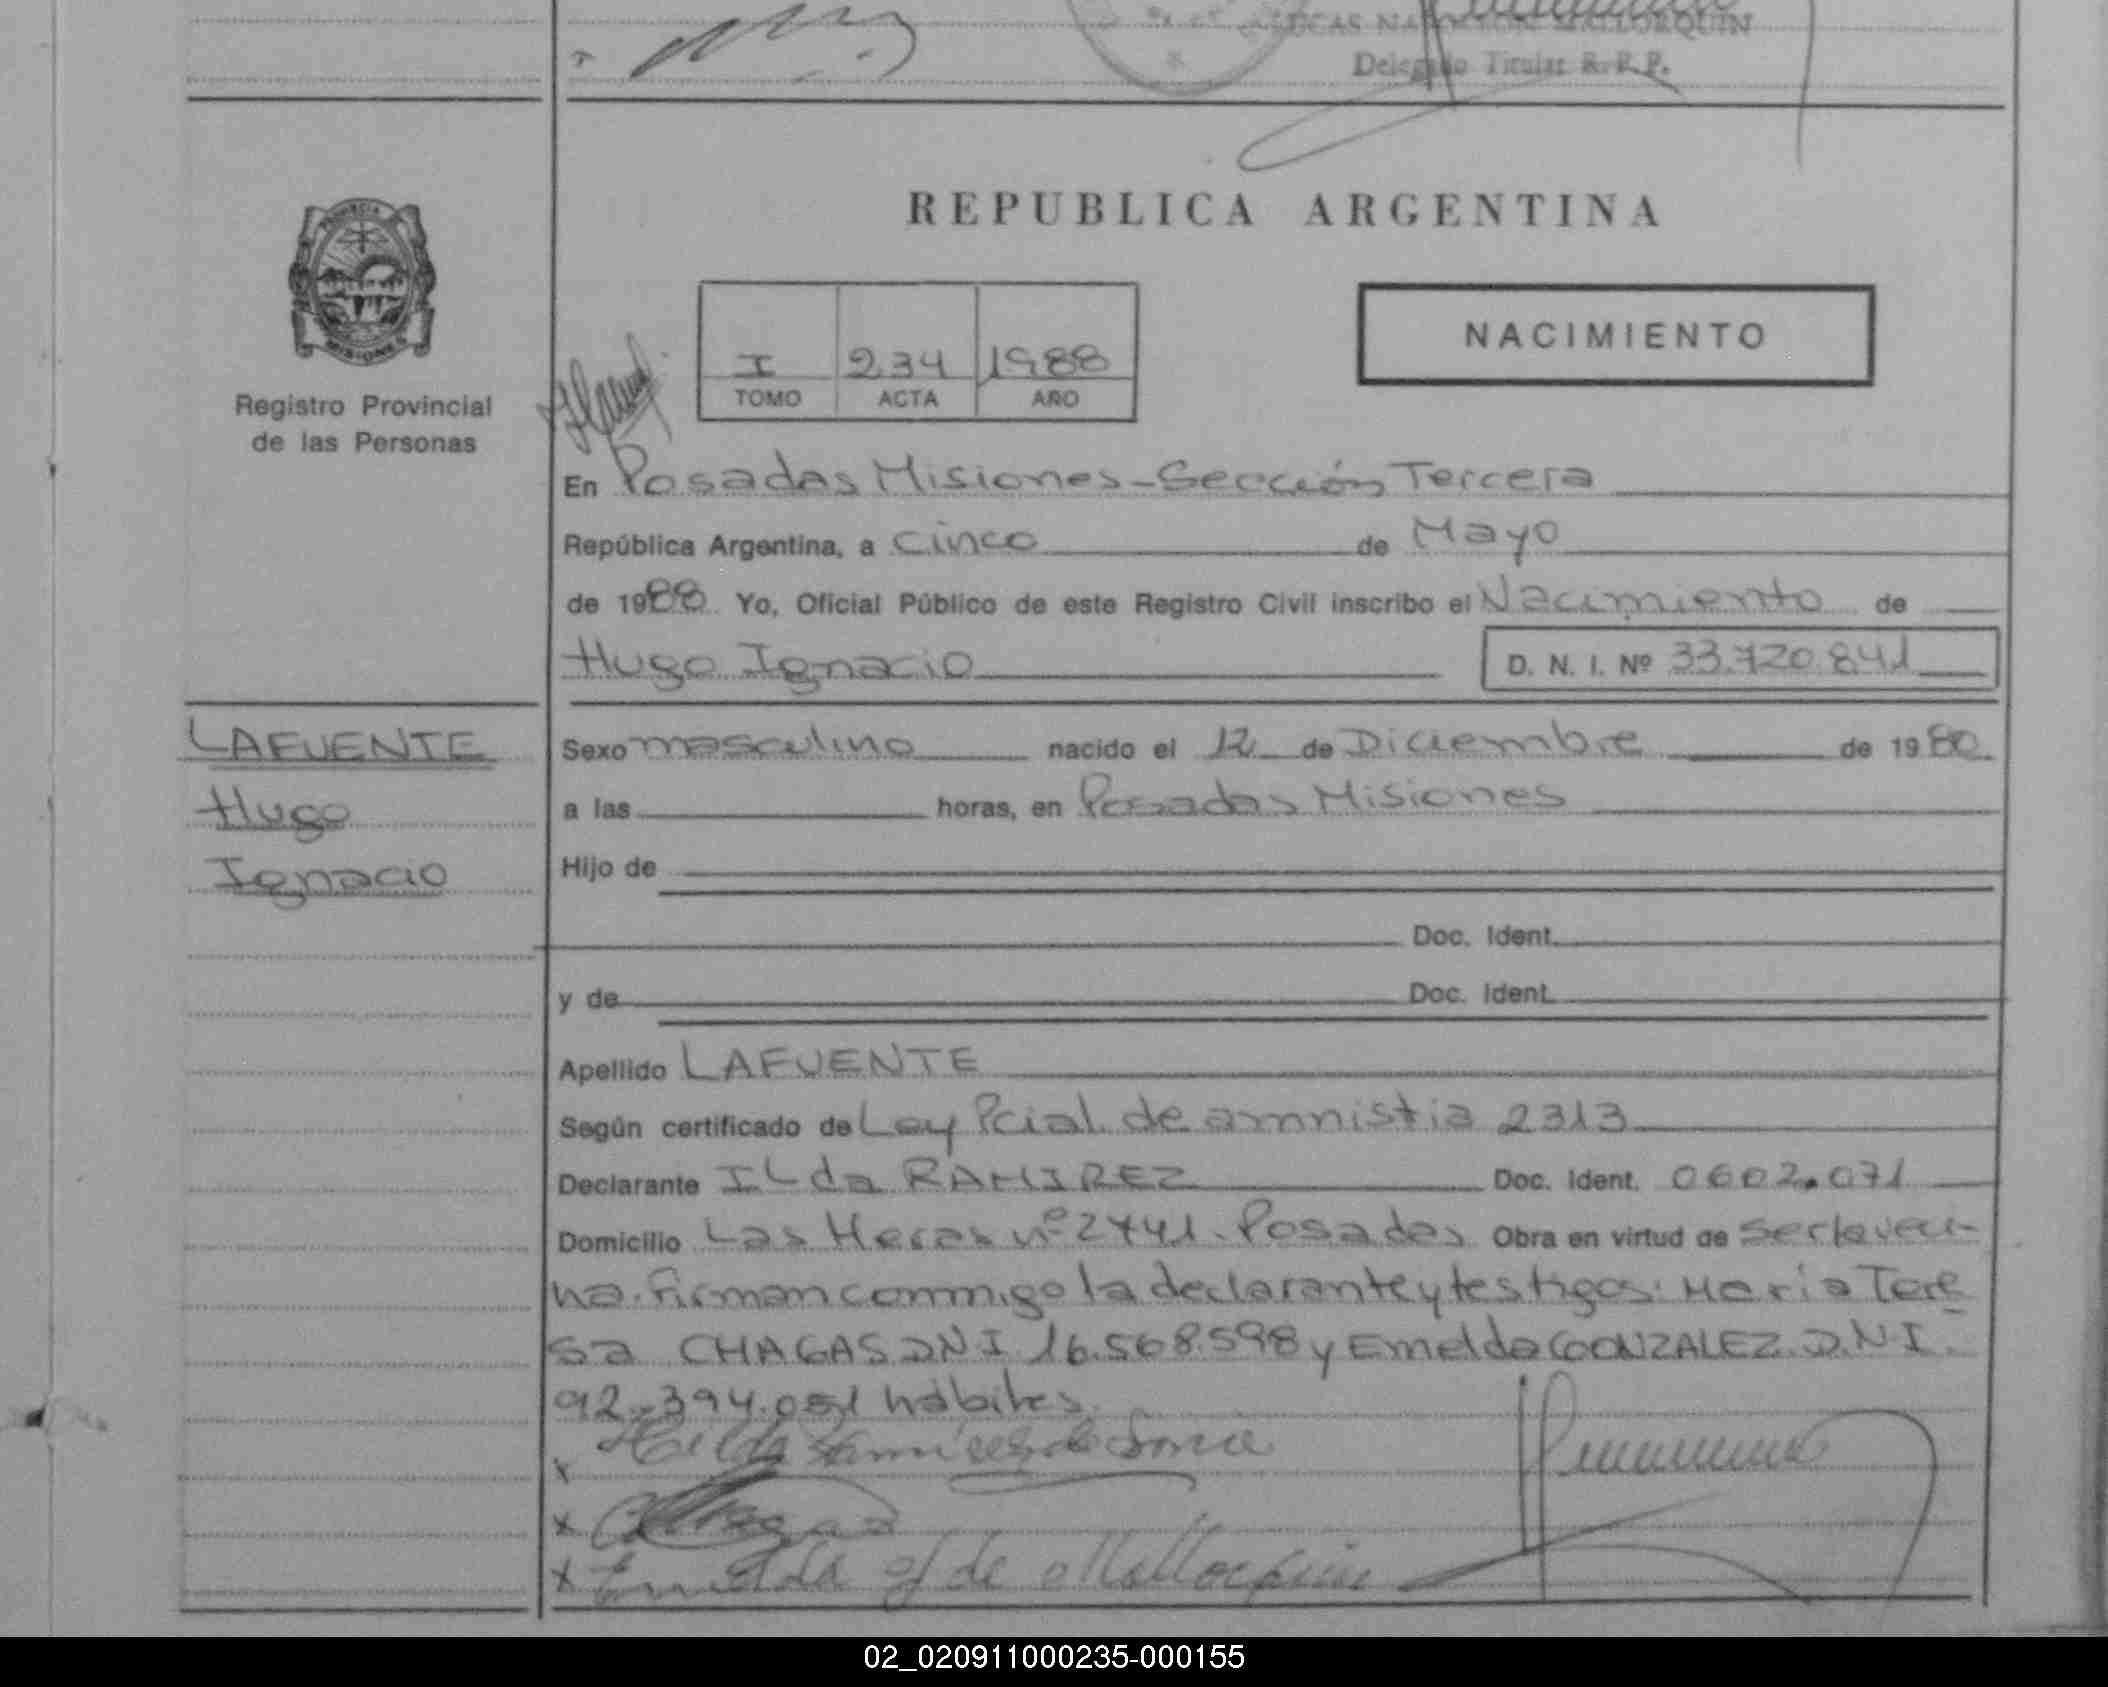 Delegado Titular R. P. P.
PROVINCIA
MISIONES
Registro Provincial
de las Personas
REPUBLICA ARGENTINA
NACIMIENTO
I 234 1988
TOMO ACTA AÑO
En Posadas Misiones-Sección Tercera
República Argentina, a cinco de Mayo
de 1988 Yo, Oficial Público de este Registro Civil inscribo el Nacimiento de
Hugo Ignacio D. N. I. Nº 33.720.841
LAFUENTE
Hugo
Ignacio
Sexo masculino nacido el 12 de Diciembre de 1980
a las horas, en Posadas Misiones
Hijo de
Doc. Ident.
y de Doc. Ident.
Apellido LAFUENTE
Según certificado de Ley Pcial. de amnistia 2313
Declarante ILda RAMIREZ Doc. Ident. 0602.071
Domicilio Las Heras nº 2741. Posadas Obra en virtud de ser la veci-
na. firman conmigo la declarante y testigos: Maria Tere
sa CHAGAS DNI 16.568.598 y Emelda GONZALEZ. D.N I.
92.394.051 hábiles.
x
x
x Emelda G de Mallorquin
02_020911000235-000155